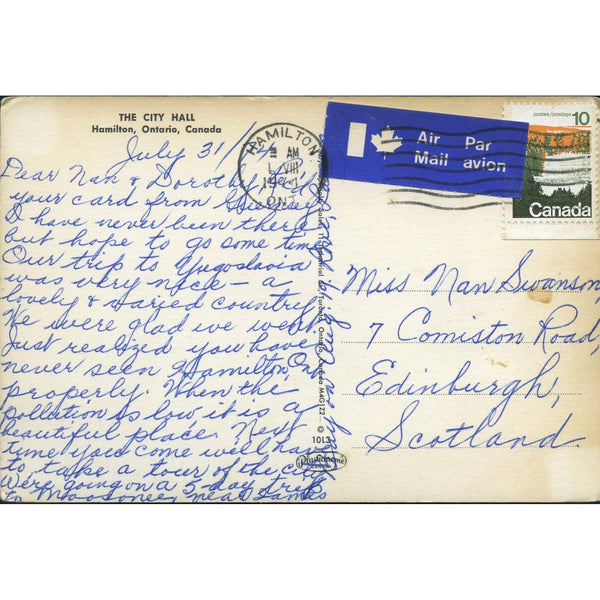 THE CITY HALL
Hamilton, Ontario, Canada
July 31/
Dear Nan & Dorothy,
your card from
I have never been there
but hope to go some time
Our trip to Yugoslavia
was very nice - a
lovely & varied country
We were glad we went
Just realized you have
never seen Hamilton, Ont
properly. When the
pollution is low it is a
beautiful place. Next
time you come we'll have
to take a tour of the city
We're going on a 5-day trip
to Moosonee, near James
HAMILTON
AM
VIII
19
ONT
Air Par
Mail avion
postes/postage 10
Canada
Miss Nan Swanson,
7 Comiston Road,
Edinburgh,
Scotland.
Ontario, Canada M4G1Z2
© 10L3
plastichrome